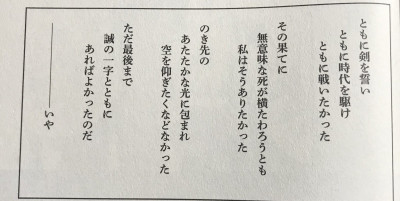 ともに剣を誓い
ともに時代を駆け
ともに戦いたかった
その果てに
無意味な死が横たわろうとも
私はそうありたかった
のき先の
あたたかな光に包まれ
空を仰ぎたくなどなかった
ただ最後まで
誠の一字とともに
あればよかったのだ
―――いや